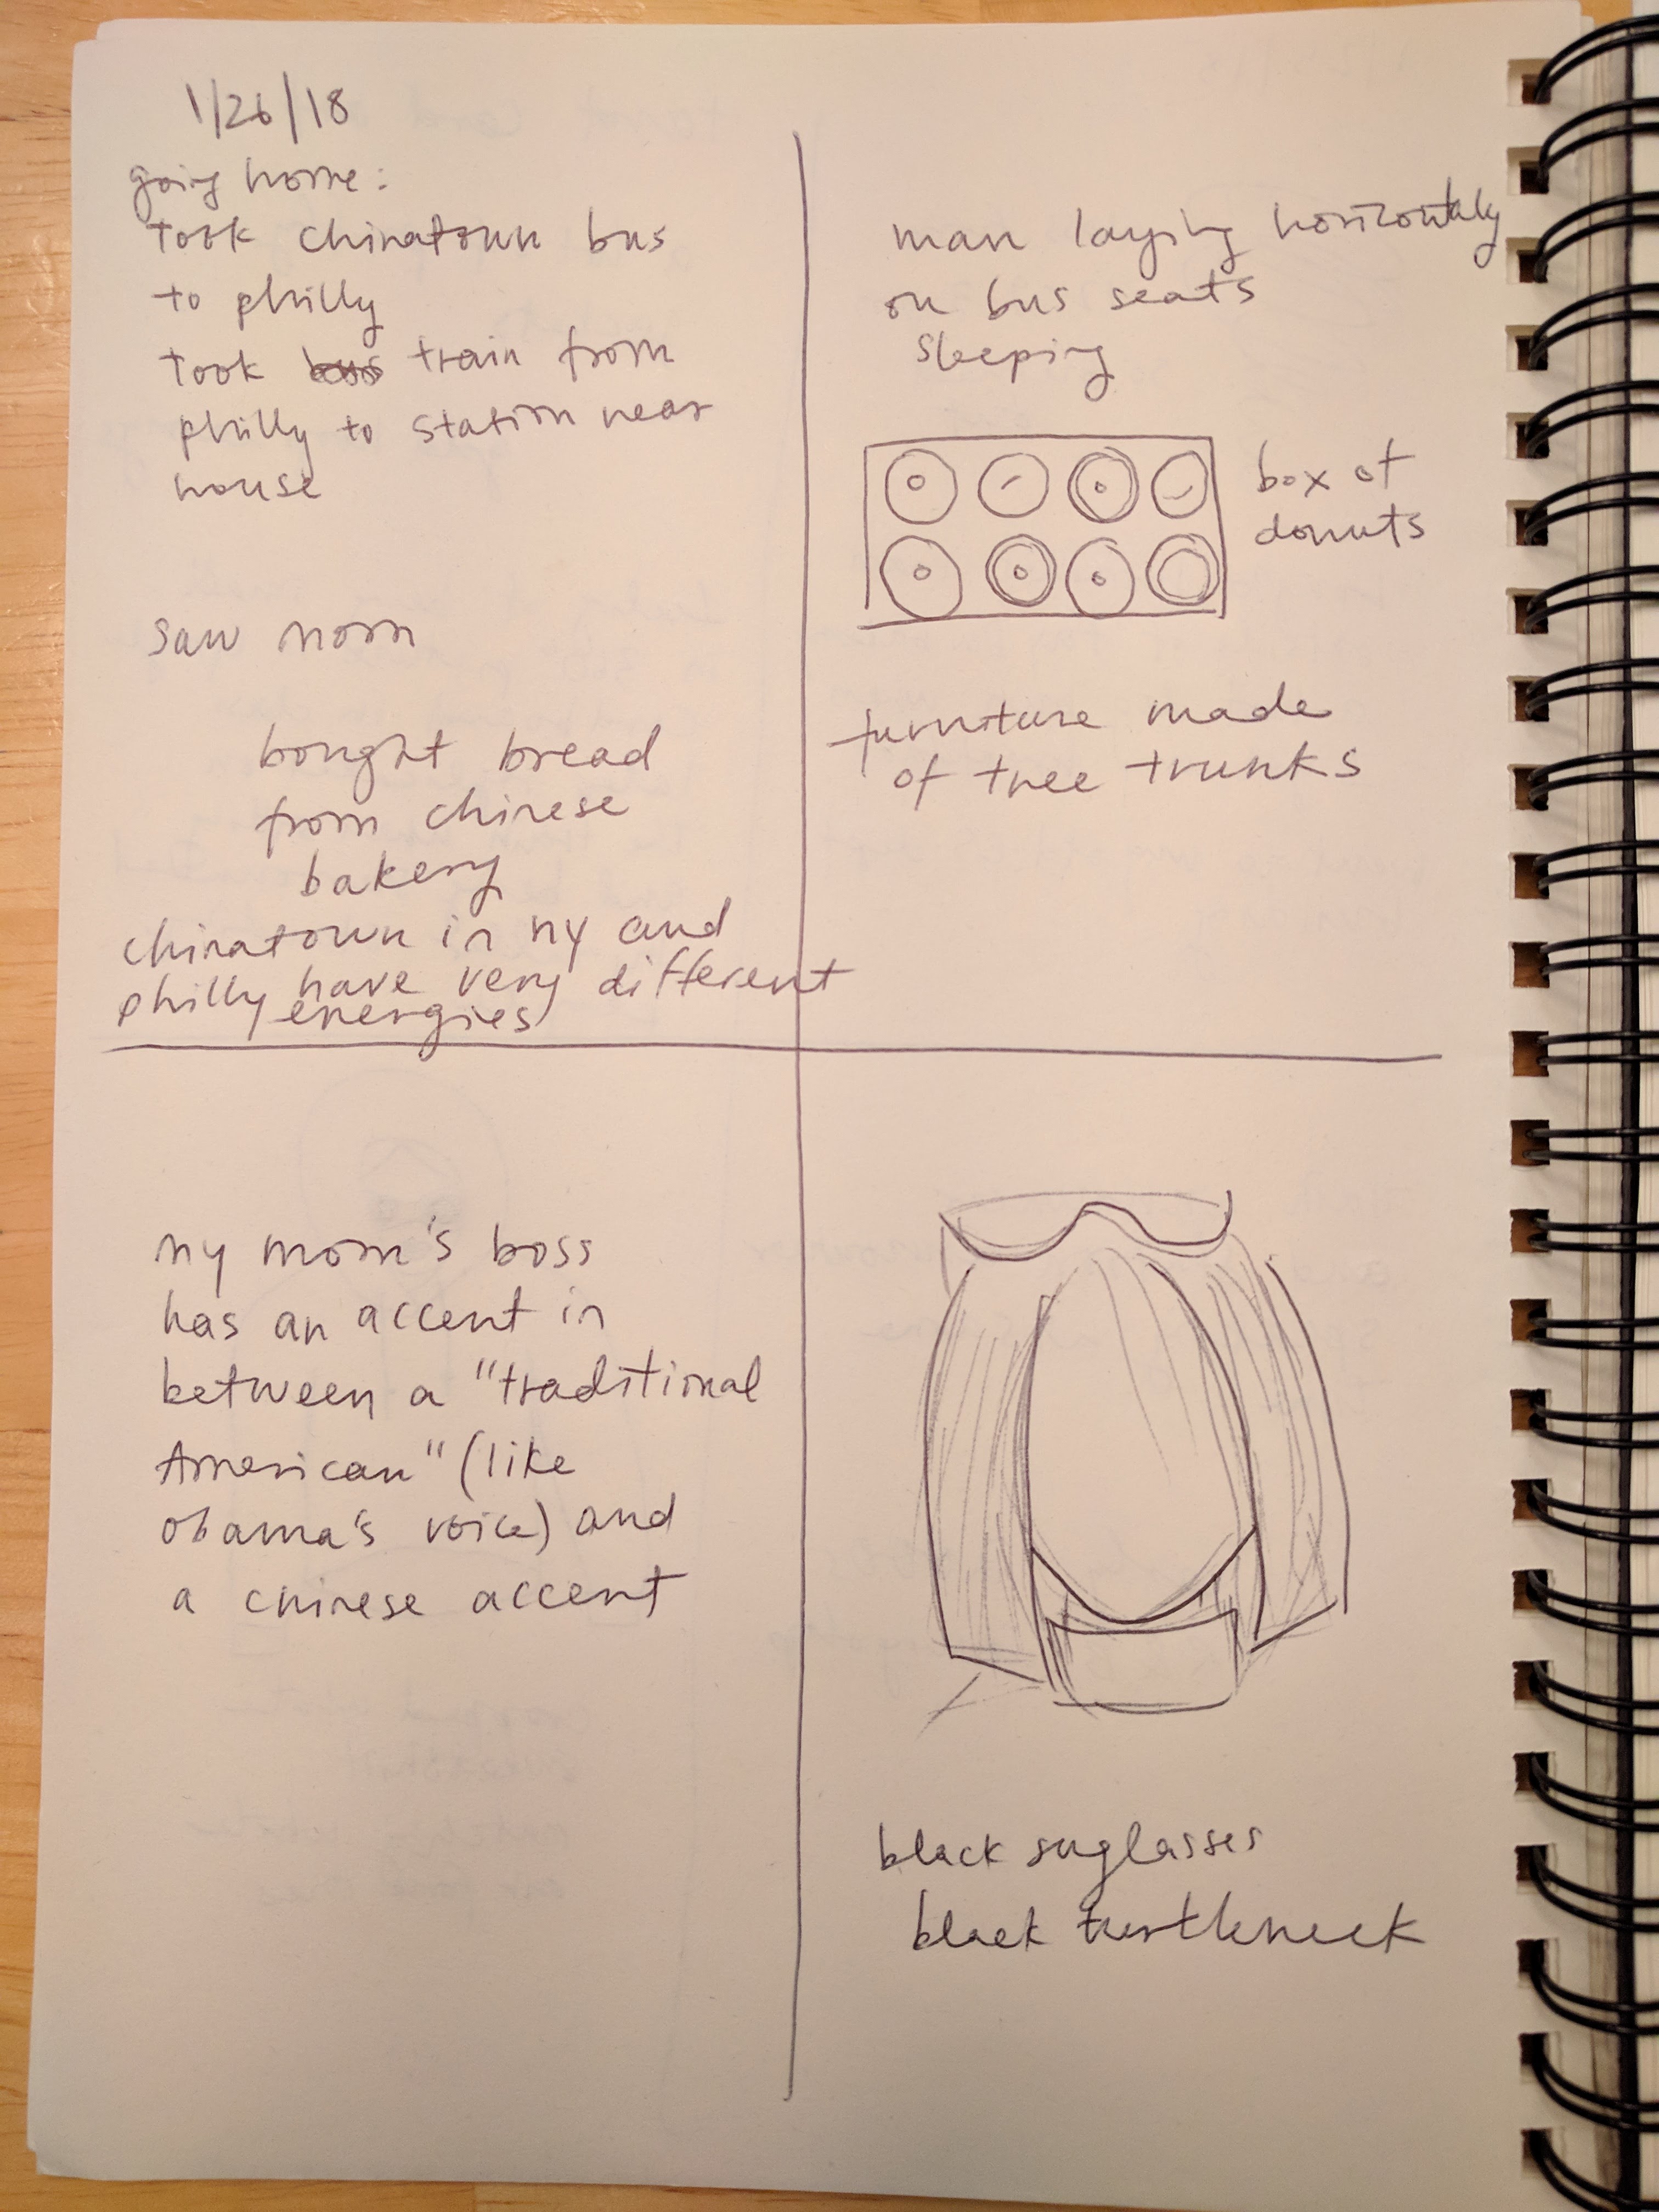 1/26/18
going home:
took chinatown bus
to philly
took bus train from
philly to station near
house
saw mom
bought bread
from chinese
bakery
chinatown in ny and
philly have very different
energies
man laying horizontally
on bus seats
sleeping
box of
donuts
furniture made
of tree trunks
my mom's boss
has an accent in
between a "traditional
American" (like
obama's voice) and
a chinese accent
black suglasses
black turtleneck